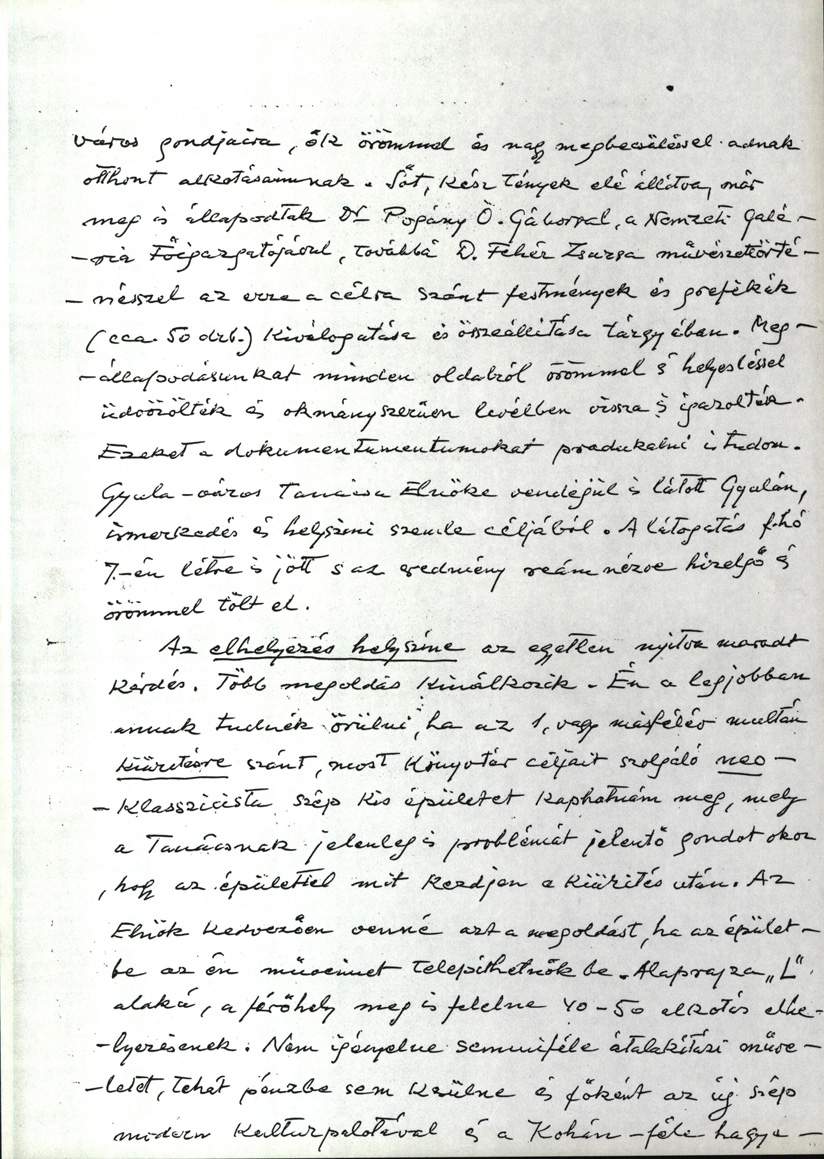 város gondjaira, ők örömmel és nagy megbecsüléssel adnak
otthont alkotásaimnak. Sőt, kész tények elé állítva, már
meg is állapodtak Dr Pogány Ö. Gáborral, a Nemzeti Galé-
-ria Főigazgatójával, továbbá D. Fehér Zsuzsa művészettörté-
-nésszel az erre a célra szánt festmények és grafikák
(cca. 50 drb.) kiválogatása és összeállítása tárgyában. Meg-
-állapodásunkat minden oldalról örömmel s helyesléssel
üdvözölték és okmányszerüen levélben vissza is igazolták.
Ezeket a dokumentumentumokat produkálni is tudom.
Gyula-város Tanácsa Elnöke vendégül is látott Gyulán,
ismerkedés és helyszini szemle céljából. A látogatás f.hó
7.-én létre is jött s az eredmény reám nézve hizelgő és
örömmel tölt el.
Az elhelyezés helyszine az egyetlen nyitva maradt
kérdés. Több megoldás kinálkozik. Én a legjobban
annak tudnék örülni, ha az 1, vagy másfélév multán
kiüritésre szánt, most könyvtár céljait szolgáló neo-
-klasszicista szép kis épületet kaphatnám meg, mely
a Tanácsnak jelenleg is problémát jelentő gondot okoz
, hogy az épülettel mit kezdjen a kiürités után. Az
Elnök kedvezően venné azt a megoldást, ha az épület-
be az én müveimet telepithetnők be. Alaprajza „L"
alakú, a férőhely meg is felelne 40-50 alkotás elhe-
-lyezésének. Nem igényelne semmiféle átalakitási müve-
-letet, tehát pénzbe sem kerülne és főként az új szép
modern Kulturpalotával és a Kohán-féle hagya-